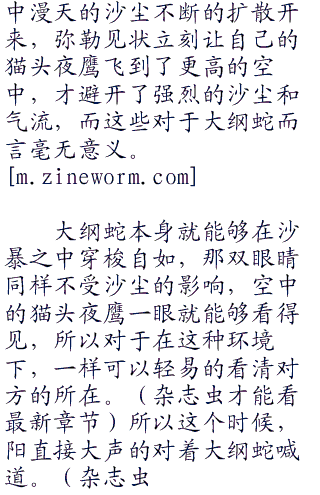 中漫天的沙尘不断的扩散开
来，弥勒见状立刻让自己的
猫头夜鹰飞到了更高的空
中，才避开了强烈的沙尘和
气流，而这些对于大纲蛇而
言毫无意义。
[m.zineworm.com]
大纲蛇本身就能够在沙
暴之中穿梭自如，那双眼睛
同样不受沙尘的影响，空中
的猫头夜鹰一眼就能够看得
见，所以对于在这种环境
下，一样可以轻易的看清对
方的所在。（杂志虫才能看
最新章节）所以这个时候，
阳直接大声的对着大纲蛇喊
道。（杂志虫